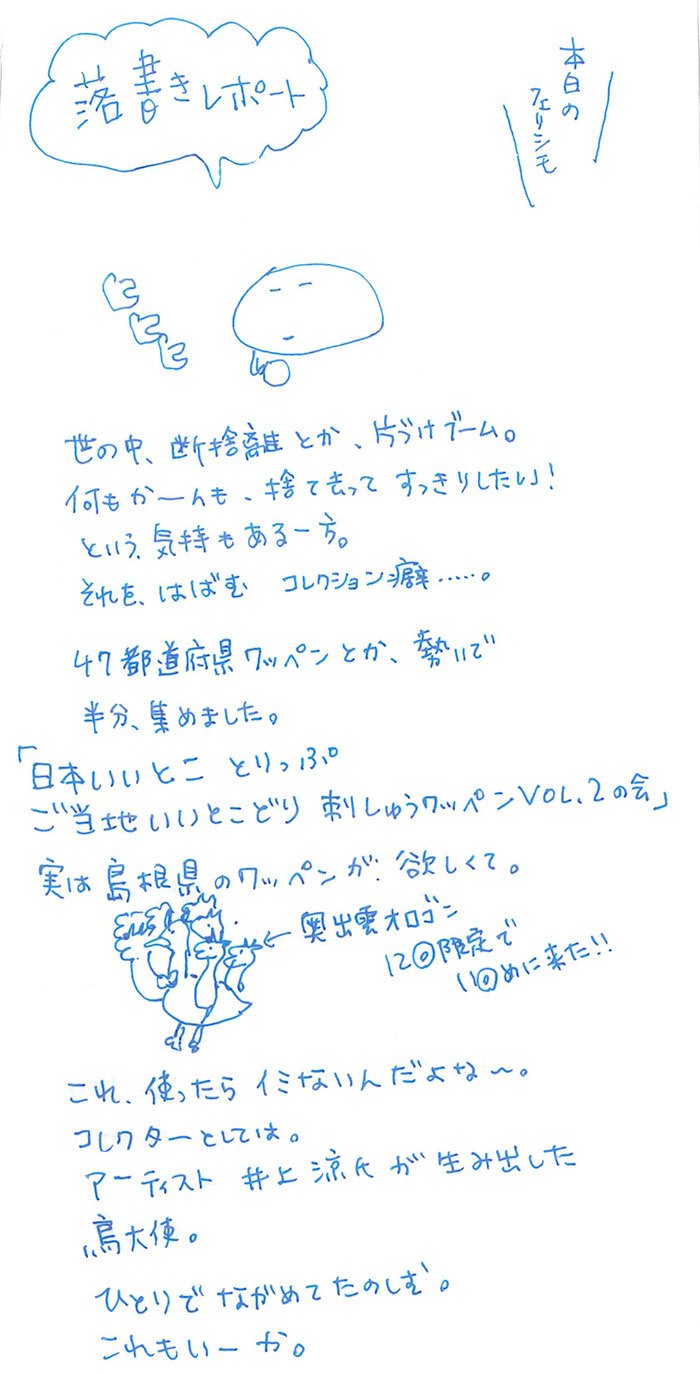 落書きレポート
本日の
フェリシモ
世の中、断捨離とか、片づけブーム。
何もかーんも、捨て去って すっきりしたい!
という、気持もある一方。
それを、はばむ コレクション癖……。
47都道府県ワッペンとか、勢いで
半分、集めました。
「日本いいとこ とりっぷ
ご当地いいとこどり 刺しゅうワッペンVOL.2の会」
実は島根県のワッペンが欲しくて。
←奥出雲オロゴン
12回限定で
11回めに来た!!
これ、使ったらイミないんだよな〜。
コレクターとしては。
アーティスト 井上涼氏が生み出した
鳥大使。
ひとりでながめてたのしむ。
これもいーか。